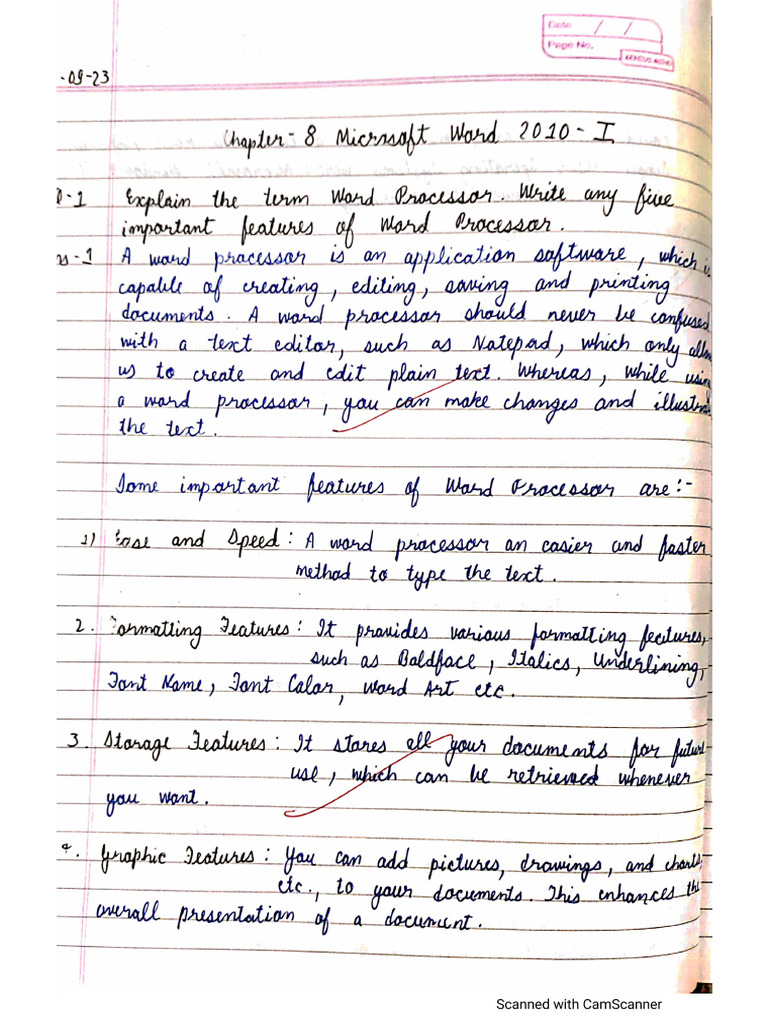 Date / /
Page No.
-09-23
Chapter-8 Micrsoft Word 2010-I
Q-1 Explain the term Word Processor. Write any five
important features of Word Processor.
Ans-1 A word processor is an application software, which is
capable of creating, editing, saving and printing
documents. A word processor should never be confused
with a text editor, such as Notepad, which only allow
us to create and edit plain text. Whereas, while using
a word processor, you can make changes and illustrat
the text.
Some important features of Word Processor are:-
1) Ease and Speed: A word processor an easier and faster
method to type the text.
2. Formatting Features: It provides various formatting fectures,
such as Boldface, Italics, Underlining,
Font Name, Font Color, Word Art etc.
3. Storage Features: It stores all your documents for future
use, which can be retrieved whenever
you want.
4. Graphic Features: You can add pictures, drawings, and charts,
etc., to your documents. This enhances the
overall presentation of a document.
Scanned with CamScanner